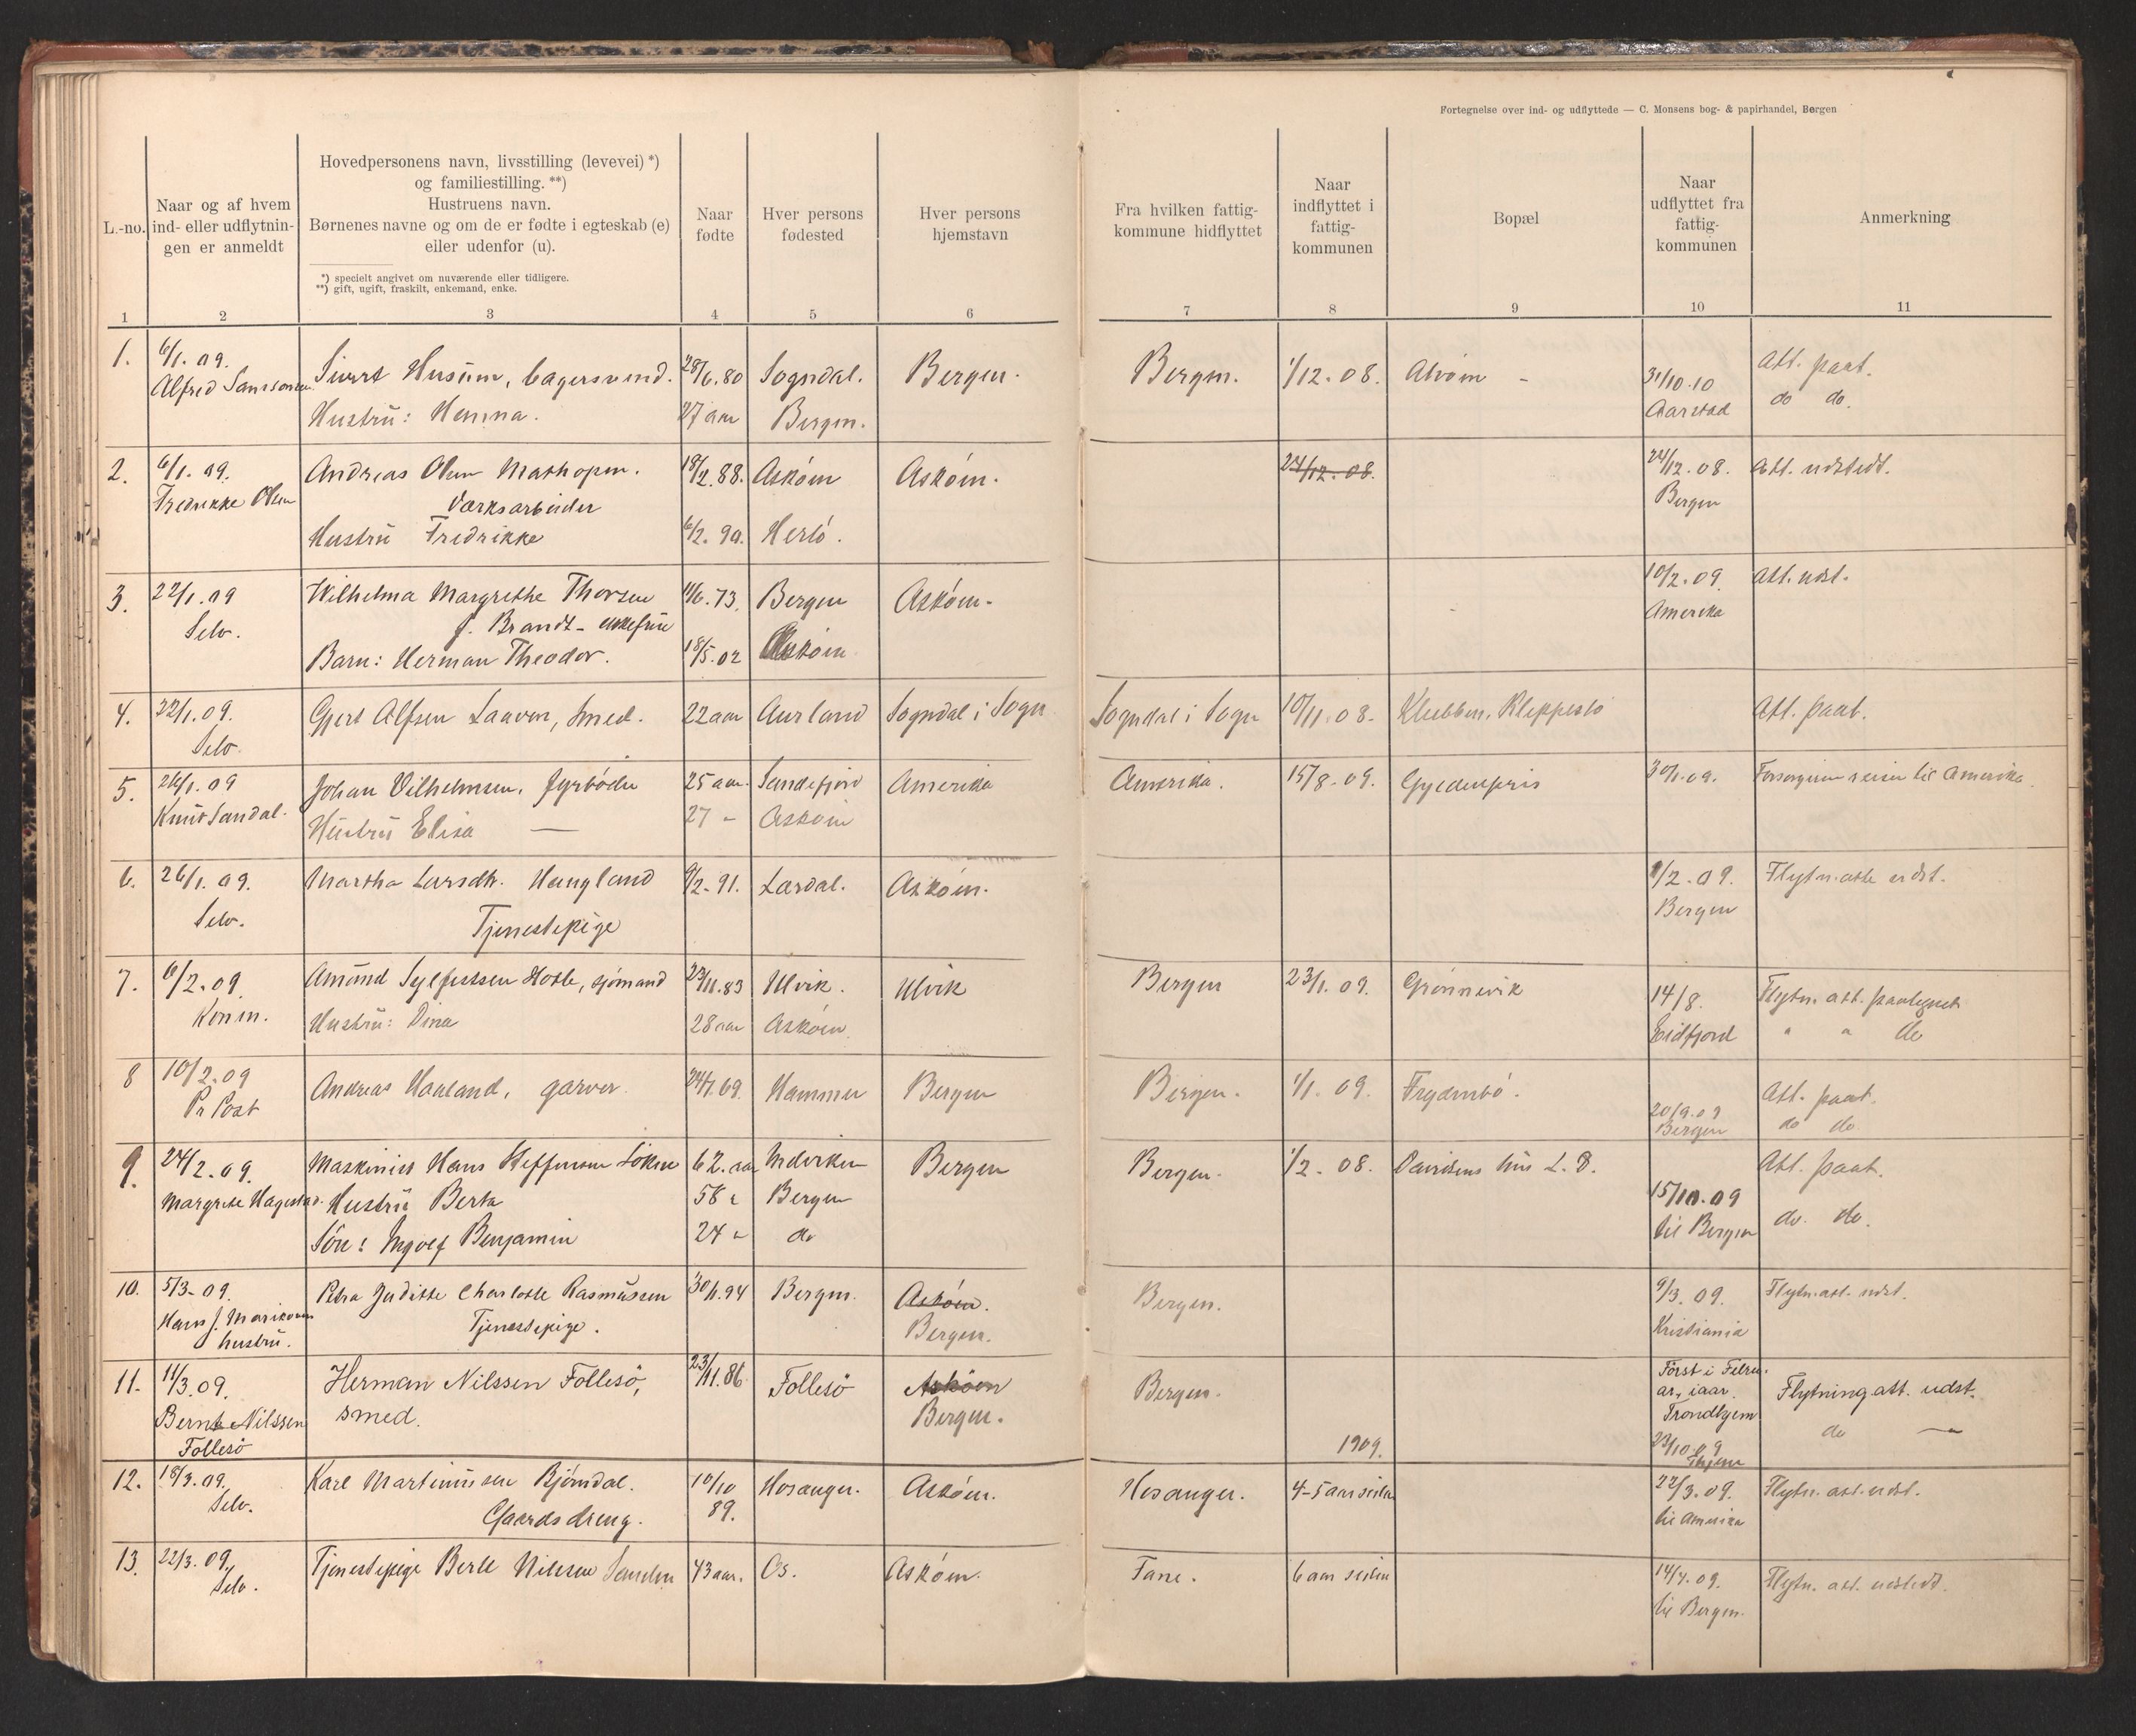 Fortegnelse over ind- og udflyttede — C. Monsens bog- & papirhandel, Bergen
L.-no.
Naar og af hvem
ind- eller udflytnin-
gen er anmeldt
Hovedpersonens navn, livsstilling (levevei) *)
og familiestilling. **)
Hustruens navn.
Børnenes navne og om de er fødte i egteskab (e)
eller udenfor (u).
*) specielt angivet om nuværende eller tidligere.
**) gift, ugift, fraskilt, enkemand, enke.
Naar
fødte
Hver persons
fødested
Hver persons
hjemstavn
Fra hvilken fattig-
kommune hidflyttet
Naar
indflyttet i
fattig-
kommunen
Bopæl
Naar
udflyttet fra
fattig-
kommunen
Anmerkning
1 2 3 4 5 6 7 8 9 10 11
1. 6/1. 09. Sivert Husum, bagersvend. 28/6.80 Sogndal. Bergen. Bergen. 1/12.08. Alvøen - 31/10.10 Att. paat.
Alfred Samsonsen Hustru: Hanna. 27 aar Bergen. Aarstad do do.
2. 6/1. 09. Andreas Olsen Mathopen. 18/2.88. Askøen Askøen. 24/12.08. 24/12.08. Att. udstedt.
Fredrikke Olsen Værksarbeider Bergen
Hustru Fredrikke 6/2. 90. Herlø.
3. 22/1.09 Wilhelma Margrethe Thorsen 11/6.73. Bergen Askøen. 10/2.09. Att. udst.
Selv. f. Brandt - enkefrue Amerika
Barn: Herman Theodor. 18/5.02 Askøen
4. 22/1.09. Gjert Alfsen Laaven, smed. 22 aar Aurland Sogndal i Sogn Sogndal i Sogn 10/11.08. Klubben, Kleppestø Att. paat.
Selv.
5. 26/1.09 Johan Vilhelmsen, fyrbøder 25 aar. Sandefjord Amerika Amerika. 15/8.09. Gyldenpris 30/1.09. Forsørgeren reiser til Amerika.
Knut Sandal. Hustru Elisa — 27 " Askøen
6. 26/1.09. Martha Larsdtr. Haugland 9/2-91. Lærdal. Askøen. 1/2.09. Flytn.atte udst.
Selv. Tjenestepige Bergen
7. 6/2.09. Amund Sylfestsen Hotle, sjømand 23/11.83 Ulvik. Ulvik Bergen 23/1.09. Grønnevik 14/8. Flytn. att. paategnet
Konen. Hustru: Dina 28 aar Askøen. Eidfjord " " do
8 10/2.09 Andreas Haaland, garver. 24/1.69. Hammer Bergen Bergen. 1/1. 09. Frydenbø. 20/9.09 Att. paat.
Pr Post Bergen do do.
9. 24/2.09. Maskinist Hans Steffensen Løken 62. aar Indviken Bergen Bergen. 1/2.08. Davidsens hus L. D. Att. paat.
Margrete Hagestad. Hustru Berta 58 " Bergen 15/10.09 do. do.
Søn: Ingolf Benjamin 24 " do til Bergen
10. 5/3-09. Petra Juditte Charlotte Rasmussen 30/1.94 Bergen. Askøen. Bergen. 9/3. 09. Flytn.att. udst.
Hans J. Tjenestepige. Bergen. Kristiania
hustru.
11. 11/3.09. Herman Nilssen Follesø, 23/11.86 Follesø Askøen Bergen. Først i Febru-
Bernt Nilssen smed. Bergen. ar, iaar. Flytning att. udst.
Follesø 1909. Trondhjem do —
23/10-09 Thjem
12. 18/3.09. Karl Martinussen Bjørndal. 10/10 Hosanger. Askøen. Hosanger. 4-5 aar siden 22/3.09. Flytn. att.udst.
Selv. Gaardsdreng. 89. til Amerika
13. 22/3. 09, Tjenestepige Berte Nilssen 43 aar. Os. Askøen. Fane. 6 aar siden 14/4.09. Flytn. att. udstedt.
Selv. til Bergen.